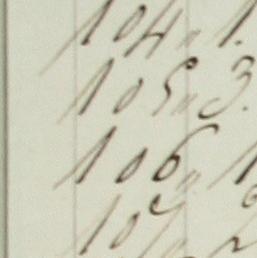 104 " 1.
105 " 3.
106 " 1
107 " 2